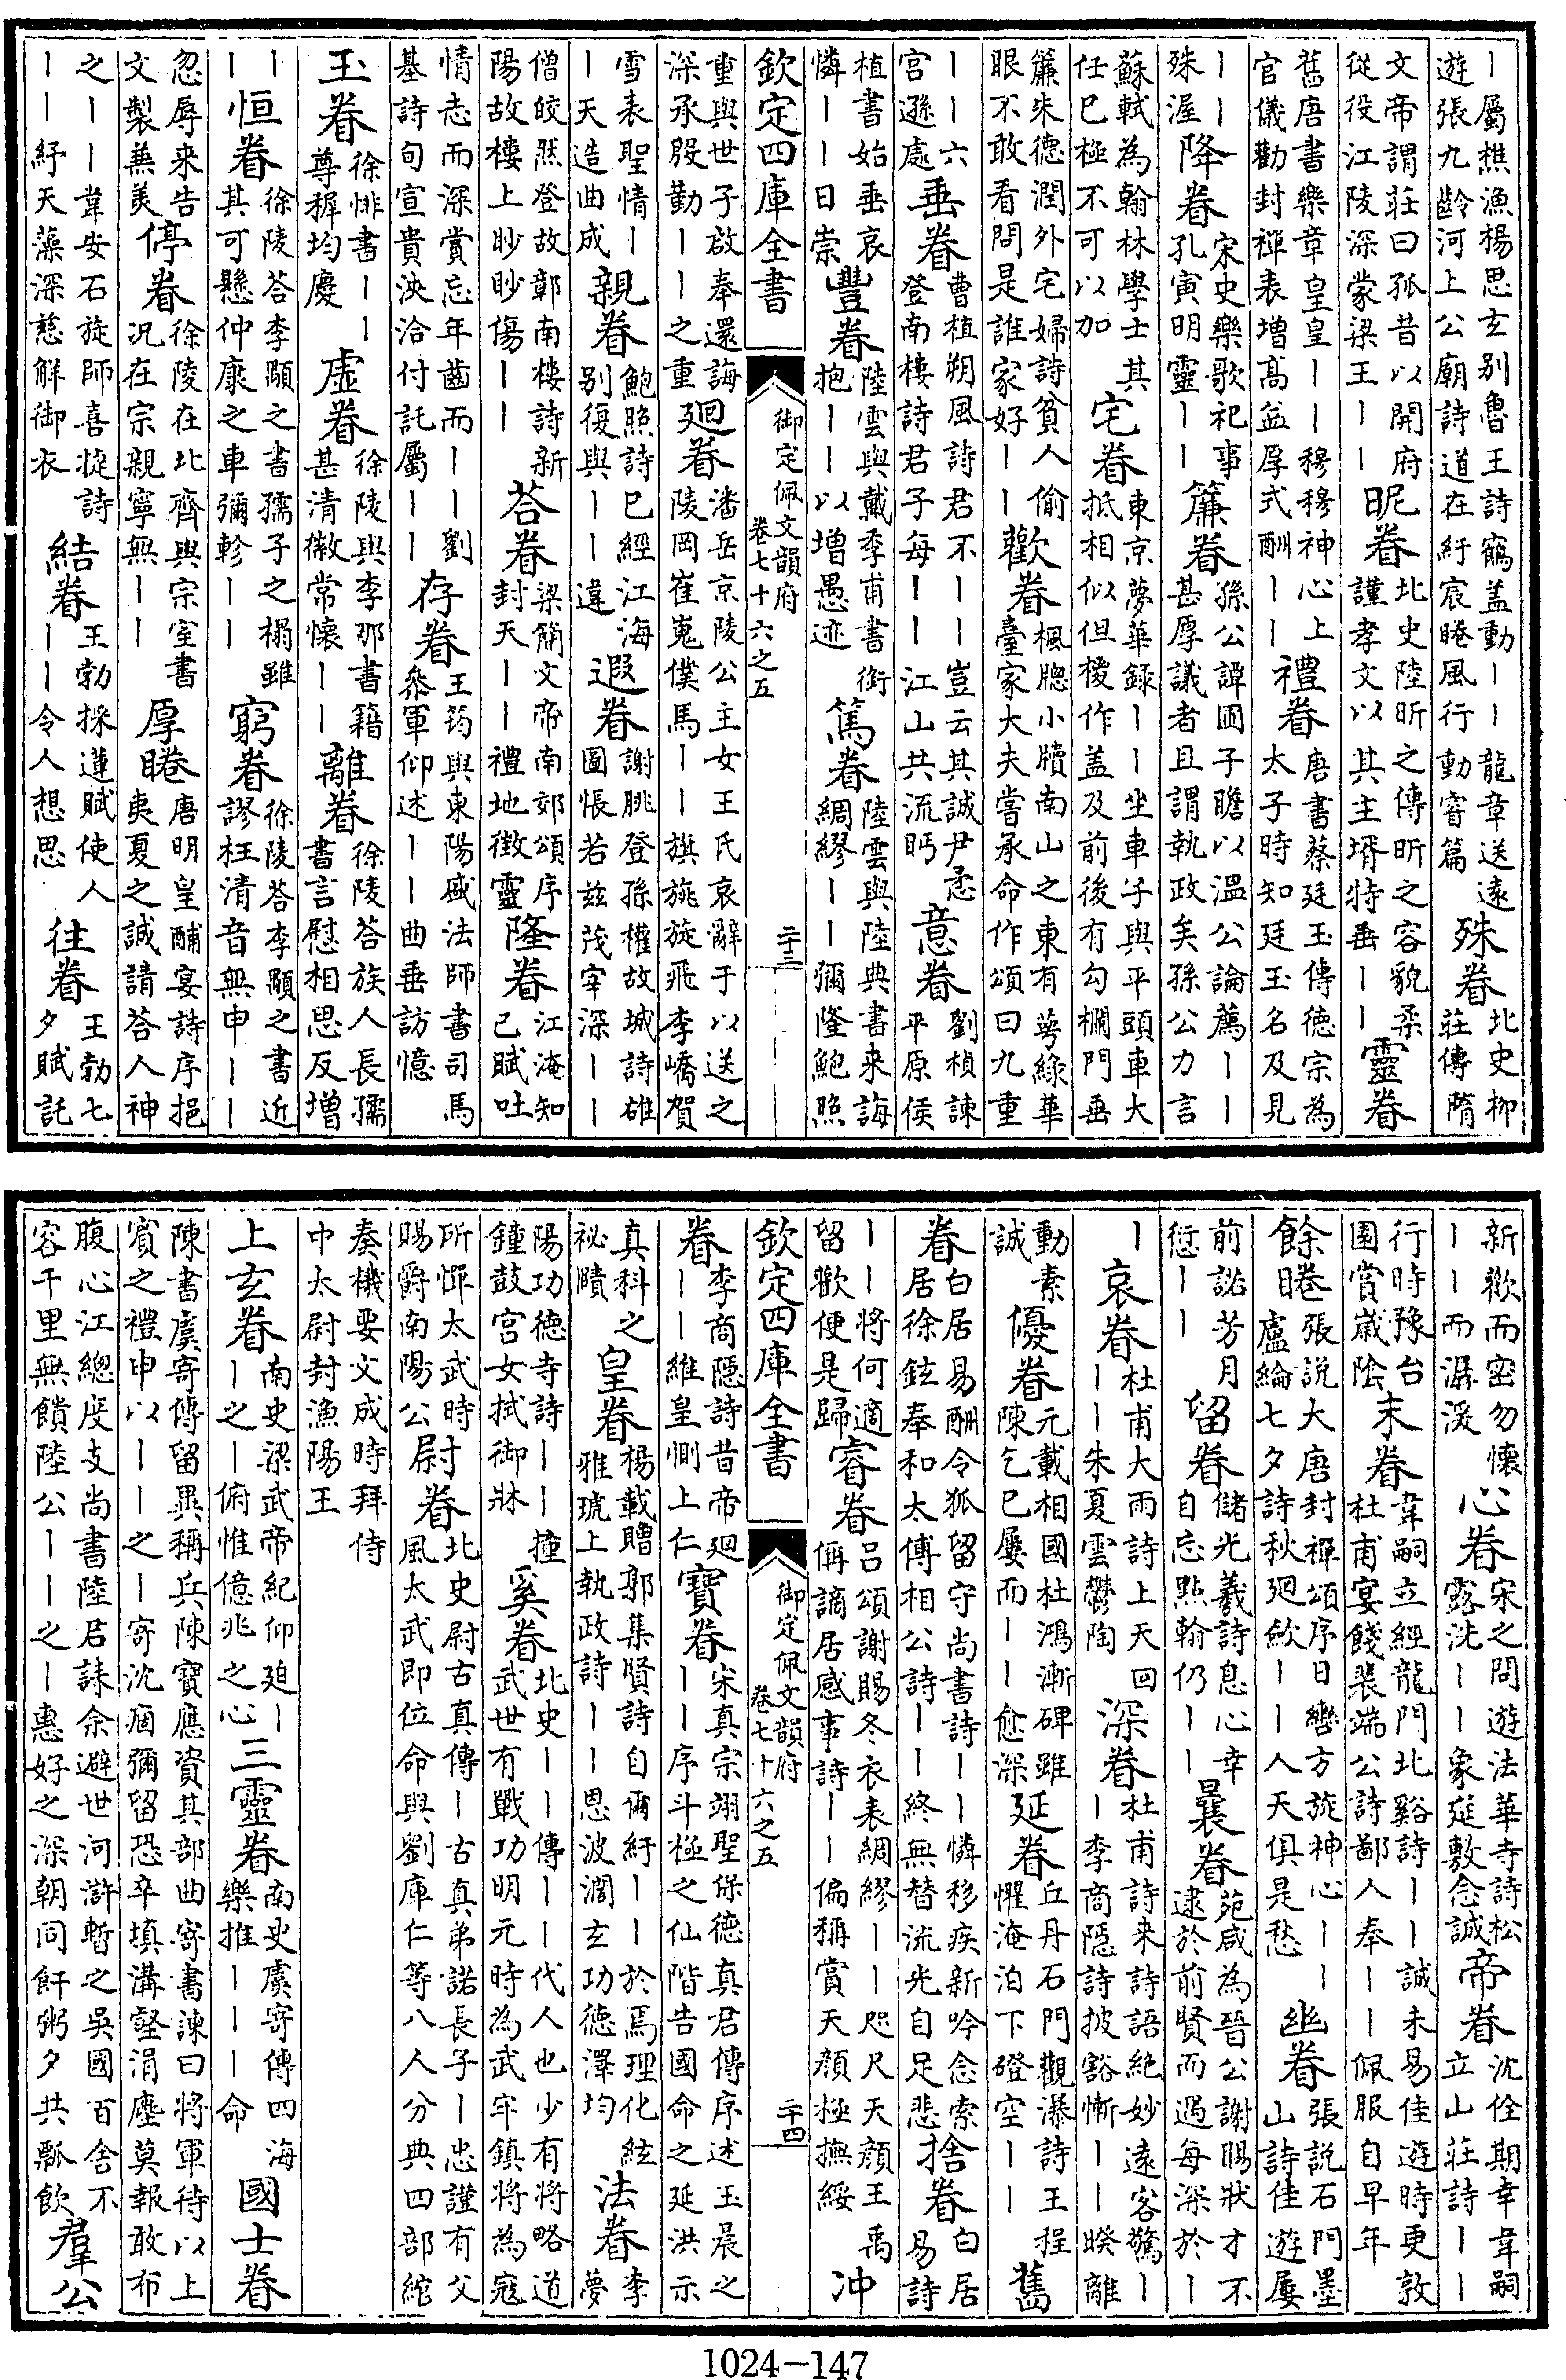 丨屬樵漁楊思玄别魯王詩鶴盖動丨丨龍章送遠
遊張九齡河上公廟詩道在紆宸睠風行動睿篇
殊眷
北史柳
莊傳隋
文帝謂莊曰孤昔以開府
從役江陵深蒙梁王丨丨
昵眷
北史陸昕之傳昕之容貌柔
謹孝文以其主壻特垂丨丨
靈眷
舊唐書樂章皇皇丨丨穆穆神心上
官儀勸封禪表增髙益厚式酬丨丨
禮眷
唐書蔡廷玉傳德宗為
太子時知廷玉名及見
丨丨
殊渥
降眷
宋史樂歌祀事
孔寅明靈丨丨
簾眷
孫公譚圃子瞻以溫公論薦丨丨
甚厚議者且謂執政矣孫公力言
蘇軾為翰林學士其
任已極不可以加
宅眷
東京夢華録丨丨坐車子與平頭車大
抵相似但椶作盖及前後有勾欄門垂
簾朱德潤外宅婦詩貧人偷
眼不敢看問是誰家好丨丨
歡眷
楓牕小牘南山之東有萼綠華
臺家大夫嘗承命作頌曰九重
丨丨六
宫遜處
垂眷
曹植朔風詩君不丨丨豈云其誠尹
登南樓詩君子每丨丨江山共流眄
意眷
劉楨諫
平原侯
植書始垂哀
憐丨丨日崇
豐眷
陸雲與戴季甫書銜
抱丨丨以增愚迹
篤眷
陸雲與陸典書来誨
綢繆丨丨彌隆鮑照
欽定四庫全書
御定佩文韻府
卷七十六之五
二十三
重與世子啟奉還誨
深承殷勤丨丨之重
廻眷
潘岳京陵公主女王氏哀辭于以送之
陵岡崔嵬僕馬丨丨旗旐旋飛李嶠賀
雪表聖情丨
丨天造曲成
親眷
鮑照詩已經江海
别復與丨丨違
遐眷
謝朓登孫權故城詩雄
圖悵若兹茂宰深丨丨
僧皎然登故鄣南樓詩新
陽故樓上眇眇傷丨丨
荅眷
梁簡文帝南郊頌序
封天丨丨禮地徴靈
隆眷
江淹知
己賦吐
情志而深賞忘年齒而丨丨劉
基詩句宣貴浹洽付託屬丨丨
存眷
王筠與東陽盛法師書司馬
叅軍仰述丨丨曲垂訪憶
玉眷
徐悱書丨丨
尊穉均慶
虚眷
徐陵與李那書籍
甚清徽常懷丨丨
離眷
徐陵荅族人長孺
書言慰相思反增
丨
丨
恒眷
徐陵荅李顒之書孺子之榻雖
其可懸仲康之車彌軫丨丨
窮眷
徐陵荅李顒之書近
謬枉清音無申丨丨
忽辱来告
文製兼美
停眷
徐陵在北齊與宗室書
况在宗親寧無丨丨
厚睠
唐明皇酺宴詩序挹
夷夏之誠請荅人神
之丨丨韋安石旋師喜捉詩
丨丨紆天藻深慈觧御衣
結眷
王勃採蓮賦使人
丨丨令人想思
往眷
王勃七
夕賦託
新歡而密勿懷
丨丨而潺湲
心眷
宋之問遊法華寺詩松
露洗丨丨象筵敷念誠
帝眷
沈佺期幸韋嗣
立山莊詩丨丨
行時豫台
園賞嵗隂
末眷
韋嗣立經龍門北谿詩丨丨誠未易佳遊時更敦
杜甫宴餞裴端公詩鄙人奉丨丨佩服自早年
餘睠
張說大唐封禪頌序日轡方旋神心丨丨
盧綸七夕詩秋廻歛丨丨人天俱是愁
幽眷
張說石門墨
山詩佳遊屢
前諾芳月
愆丨丨
留眷
儲光羲詩息心幸
自忘點翰仍丨丨
曩眷
苑咸為晉公謝賜狀才不
逮於前賢而遇每深於丨
丨
哀眷
杜甫大雨詩上天回
丨丨朱夏雲鬱陶
深眷
杜甫詩来詩語絶妙遠客驚丨
丨李商隱詩披豁慚丨丨暌離
動素
誠
優眷
元載相國杜鴻漸碑雖
陳乞已屢而丨丨愈深
延眷
丘丹石門觀瀑詩王程
懼淹泊下磴空丨丨
舊
眷
白居易酬令狐留守尚書詩丨丨憐移疾新吟念索
居徐鉉奉和太傅相公詩丨丨終無替流光自足悲
捨眷
白居
易詩
丨丨將何適
留歡便是歸
睿眷
吕頌謝賜冬衣表綢繆丨丨咫尺天顔王禹
偁謫居感事詩丨丨偏稱賞天顔極撫綏
沖
欽定四庫全書
御定佩文韻府
卷七十六之五
二十四
眷
李商隱詩昔帝廻
丨丨維皇惻上仁
寶眷
宋真宗翊聖保德真君傳序述玉晨之
丨丨序斗極之仙階告國命之延洪示
真科之
祕賾
皇眷
楊載贈郭集賢詩自偁紆丨丨於焉理化絃
雅琥上執政詩丨丨恩波濶玄功德澤均
法眷
李
夢
陽功德寺詩丨丨撞
鐘鼓宫女拭御牀
奚眷
北史丨丨傳丨丨代人也少有將略道
武世有戰功明元時為武牢鎮將為寇
所憚太武時
賜爵南陽公
尉眷
北史尉古真傳丨古真弟諾長子丨忠謹有父
風太武即位命與劉庫仁等八人分典四部綰
奏機要父成時拜侍
中太尉封漁陽王
上玄眷
南史梁武帝紀仰廹丨
丨之丨俯惟億兆之心
三靈眷
南史虞寄傳四海
樂推丨丨丨命
國士眷
陳書虞寄傳留異稱兵陳寶應資其部曲寄書諫曰將軍待以上
賓之禮申以丨丨之丨寄沈痼彌留恐卒填溝壑涓塵莫報敢布
腹心江總度支尚書陸君誄余避世河滸暫之吳國百舍不
容千里無饋陸公丨丨之丨惠好之深朝同飦粥夕共瓢飲
羣公